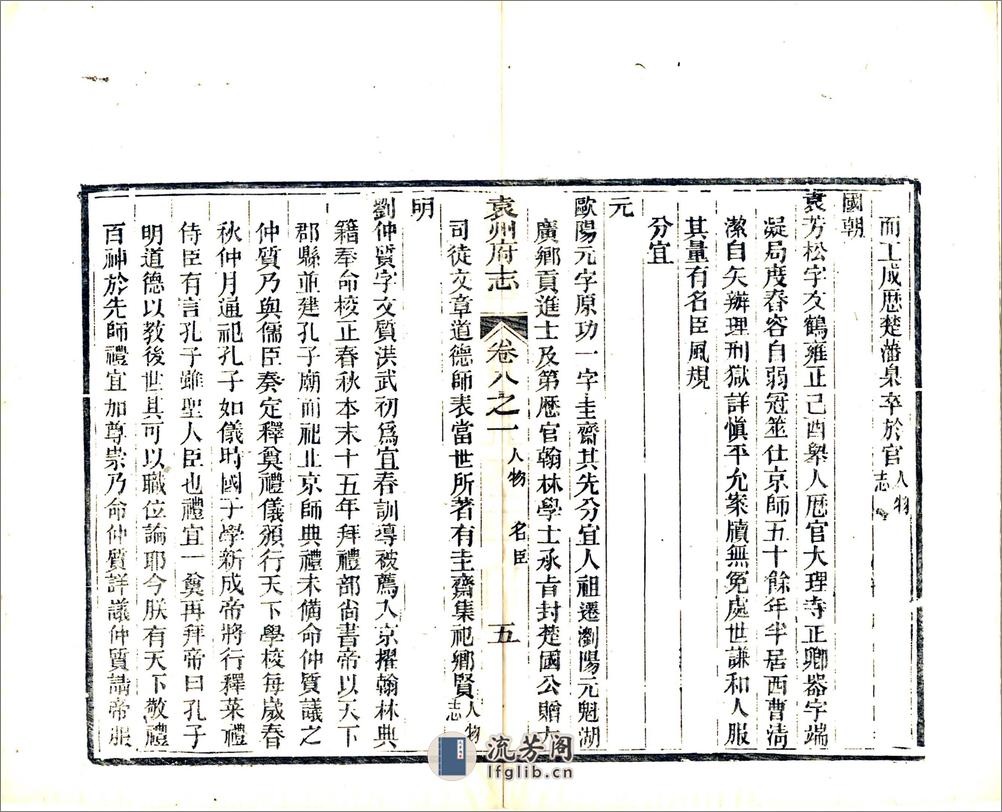 而工成歷楚藩臬卒於官人物志
國朝
袁芳松字友鶴雍正己酉舉人歷官大理寺正卿器宇端
凝局度春容自弱冠筮仕京師五十餘年半居西曹清
潔自矢辦理刑獄詳慎平允案牘無冤處世謙和人服
其量有名臣風規
分宜
元
歐陽元字原功一字圭齋其先分宜人祖遷瀏陽元魁湖
廣鄉貢進士及第歷官翰林學士承旨封楚國公贈大
袁州府志 卷八之一 人物 名臣 五
司徒文章道德師表當世所著有圭齋集祀鄉賢人物志
明
劉仲質字文質洪武初爲宜春訓導被薦入京擢翰林典
籍奉命校正春秋本末十五年拜禮部尚書帝以天下
郡縣並建孔子廟而祀止京師典禮未備命仲質議之
仲質乃與儒臣奏定釋奠禮儀頒行天下學校每歲春
秋仲月通祀孔子如儀時國子學新成帝將行釋菜禮
侍臣有言孔子雖聖人臣也禮宜一奠再拜帝曰孔子
明道德以教後世其可以職位論耶今朕有天下敬禮
百神於先師禮宜加尊崇乃命仲質詳議仲質請帝服
流芳閣
lfglib.cn